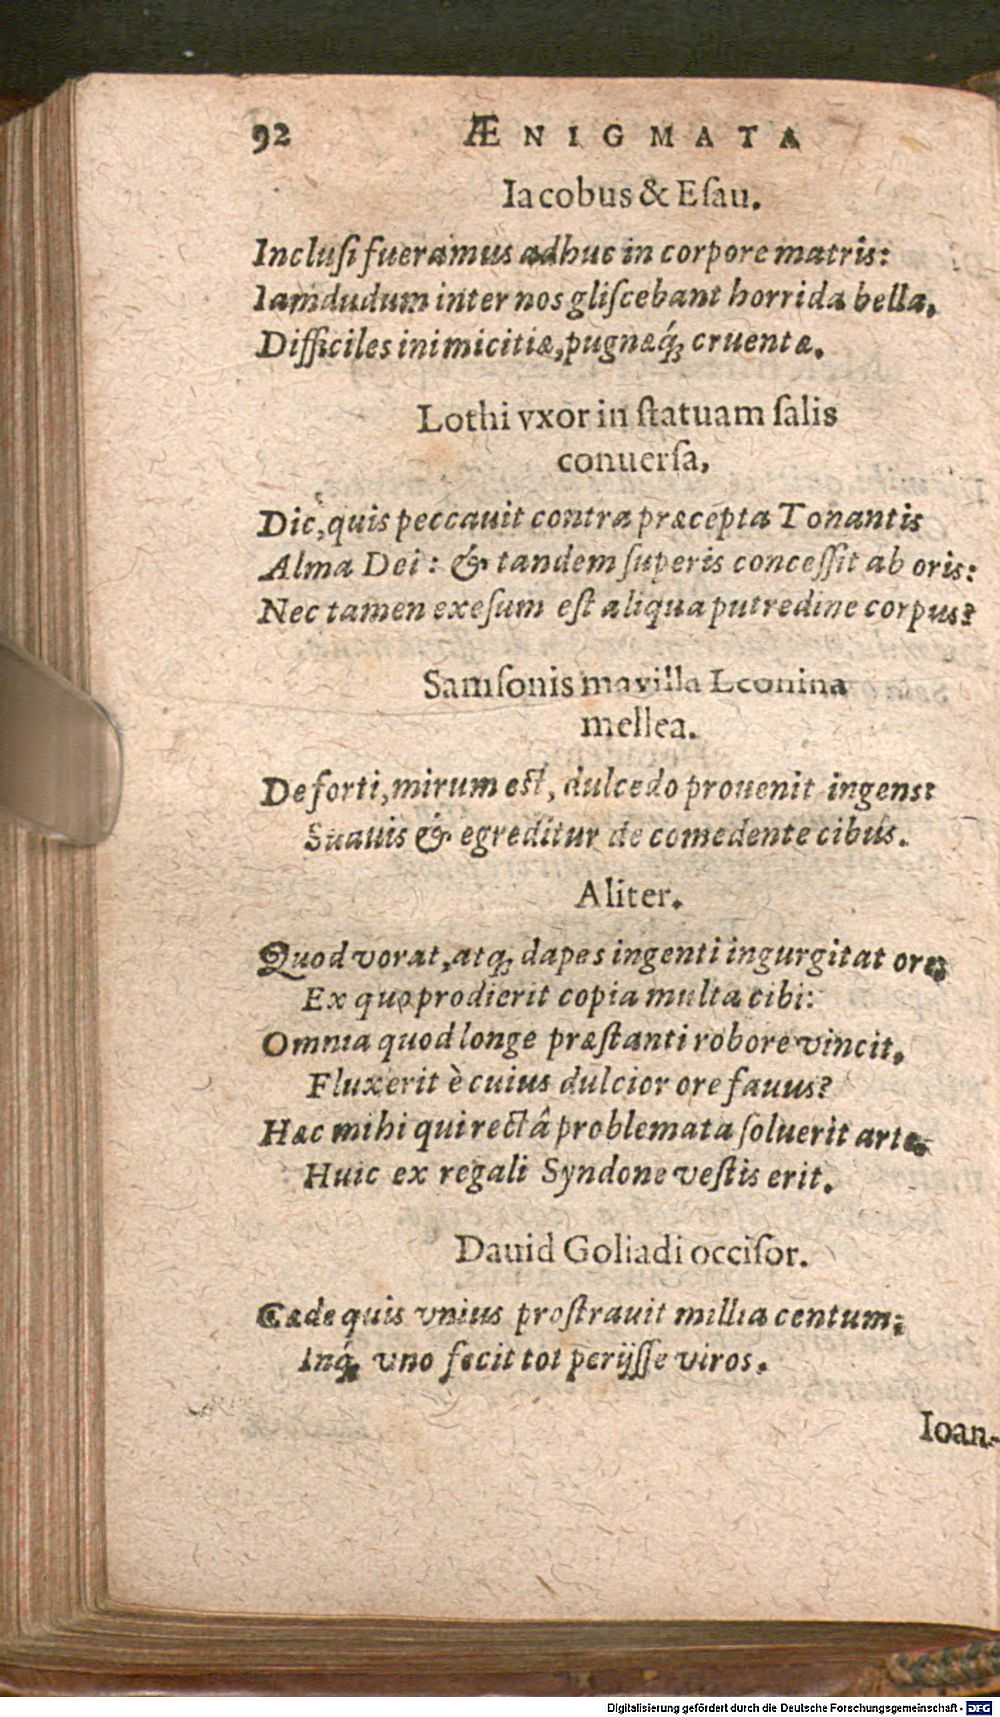 92 ÆNIGMATA
Iacobus & Eſau.
Incluſi fueramus adhuc in corpore matris:
Iamdudum inter nos gliſcebant horrida bella,
Difficiles inimicitiæ, pugnæq́; cruentæ.
Lothi vxor in ſtatuam ſalis
conuerſa,
Dic, quis peccauit contra præcepta Tonantis
Alma Dei: & tandem ſuperis conceſſit ab oris:
Nec tamen exeſum eſt aliqua putredine corpus?
Samſonis maxilla Leonina
mellea.
De forti, mirum eſt, dulcedo prouenit ingens:
Suauis & egreditur de comedente cibus.
Aliter.
Quod vorat, atq; dapes ingenti ingurgitat ore;
Ex quo prodierit copia multa cibi:
Omnia quod longe præſtanti robore vincit,
Fluxerit è cuius dulcior ore fauus?
Hæc mihi qui rectâ problemata ſoluerit arte.
Huic ex regali Syndone veſtis erit.
Dauid Goliadi occiſor.
Cæde quis vnius proſtrauit millia centum;
Inq́; vno fecit tot perijſſe viros.
Ioan-
Digitalisierung gefördert durch die Deutsche Forschungsgemeinschaft - DFG